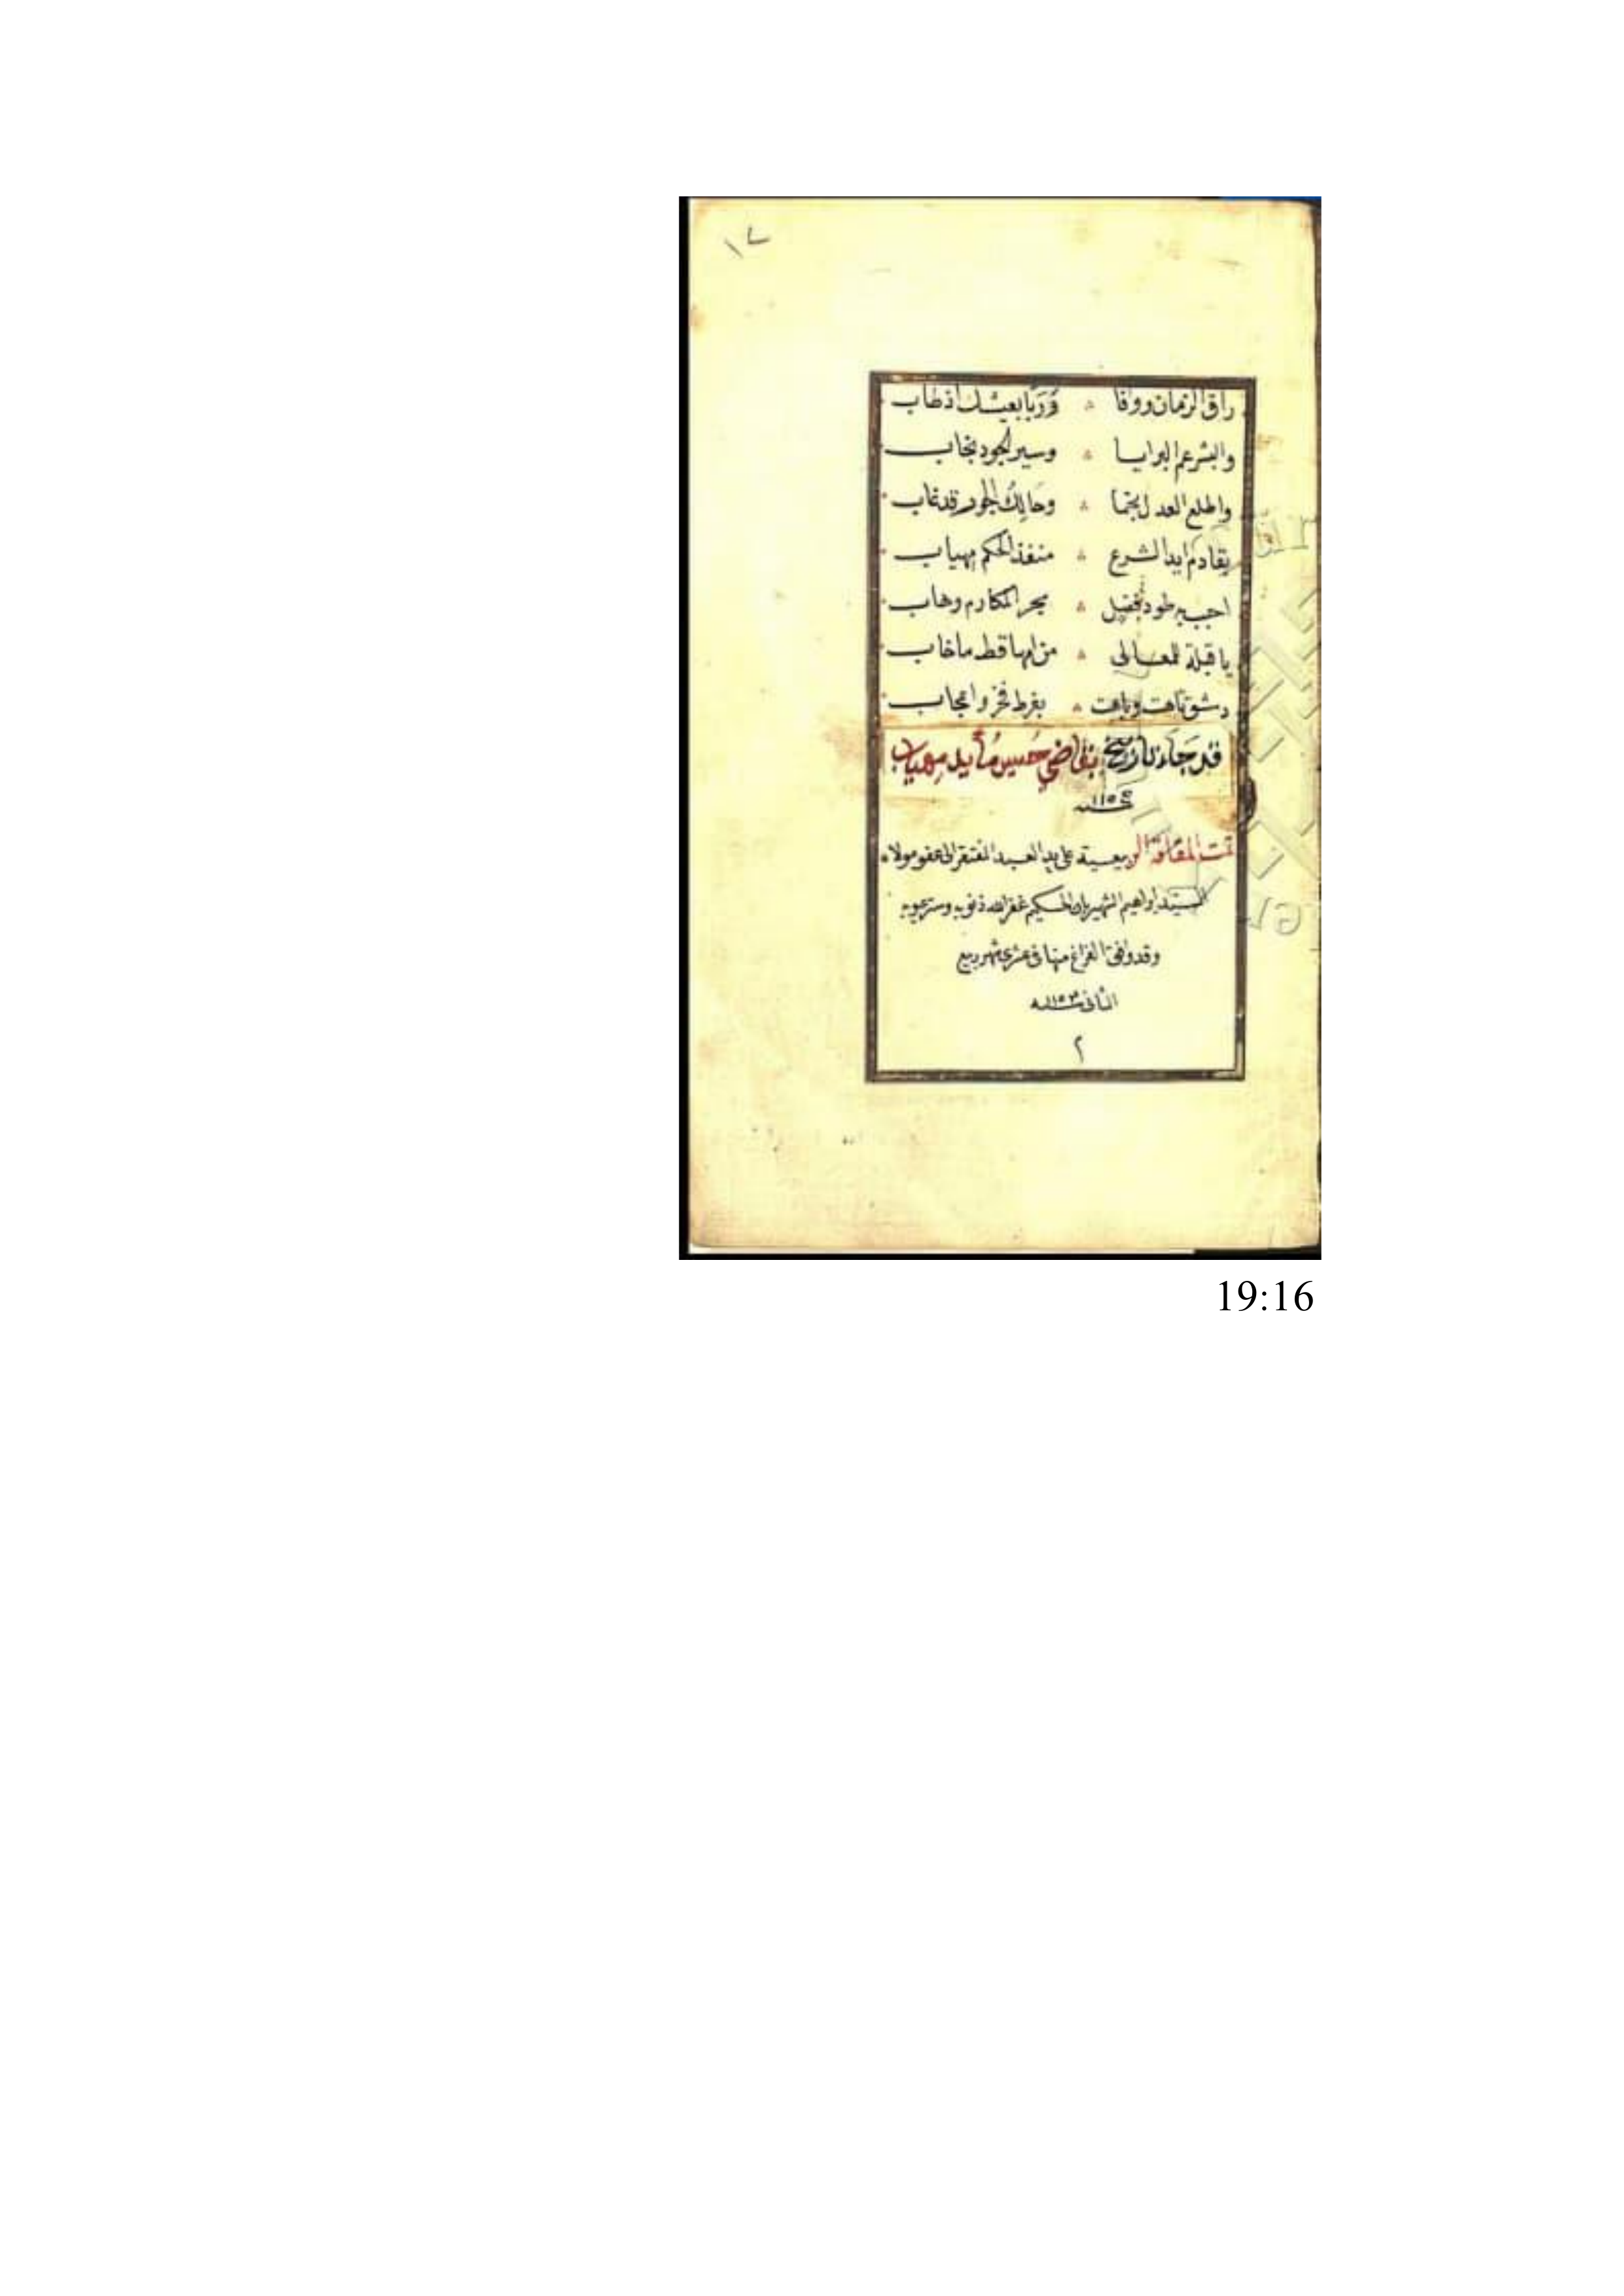 ١٧
راق الزمان ووفا ؞ بعيش اذطاب
والبشر عم البرايا ؞ وسير الجود ينجاب
واطلع العدل نجما ؞ وحالك الجور قد غاب
بقادم ايد الشرع ؞ منفذ الحكم مهياب
طود فضل ؞ بحر المكارم وهاب
يا قبلة للمعالي ؞ من امها قط ما خاب
دمشق تاهت وباهت ؞ بفرط فخر واعجاب
قد جاء تاريخ بقاضي حسين مأيد مهياب
سنه
تمت المقامة الربيعية على يد العبد المفتقر الى عفو مولاه
السيد ابراهيم الشهير بابن الحكيم غفر الله ذنوبه وستر عيوبه
وقد وافق الفراغ منها في شهر ربيع
الثاني سنه ١١٥٣
م
19:16